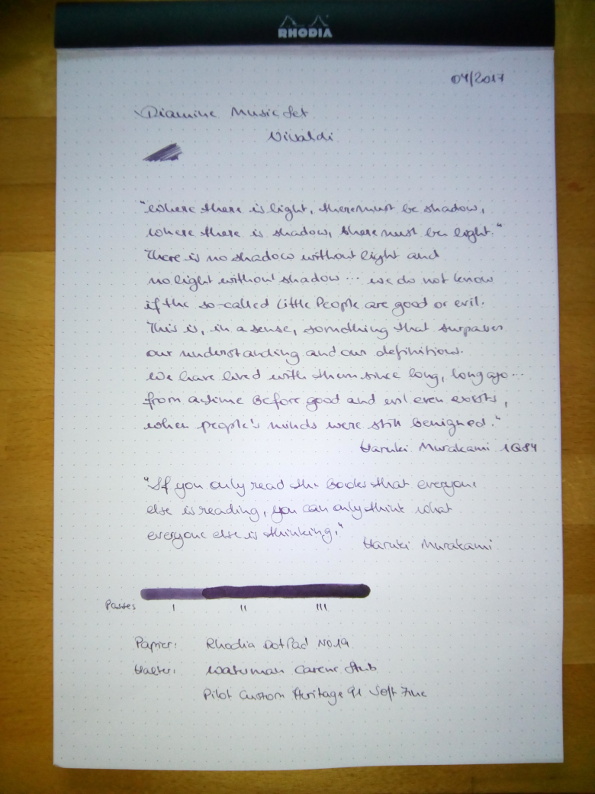 RHODIA
04/2017
Diamine Music Set
Vivaldi
"Where there is light, there must be shadow,
where there is shadow, there must be light."
There is no shadow without light and
no light without shadow... we do not know
if the so-called Little People are good or evil.
This is, in a sense, something that surpasses
our understanding and our definitions.
We have lived with them since long, long ago...
from a time before good and evil even exists,
when people's minds were still benighted."
Haruki Murakami 1Q84
"If you only read the Books that everyone
else is reading, you can only think what
everyone else is thinking."
Haruki Murakami
Passes I II III
Papier: Rhodia DotPad No 19
Halter: Waterman Carene Stub
Pilot Custom Heritage 91 Soft Fine